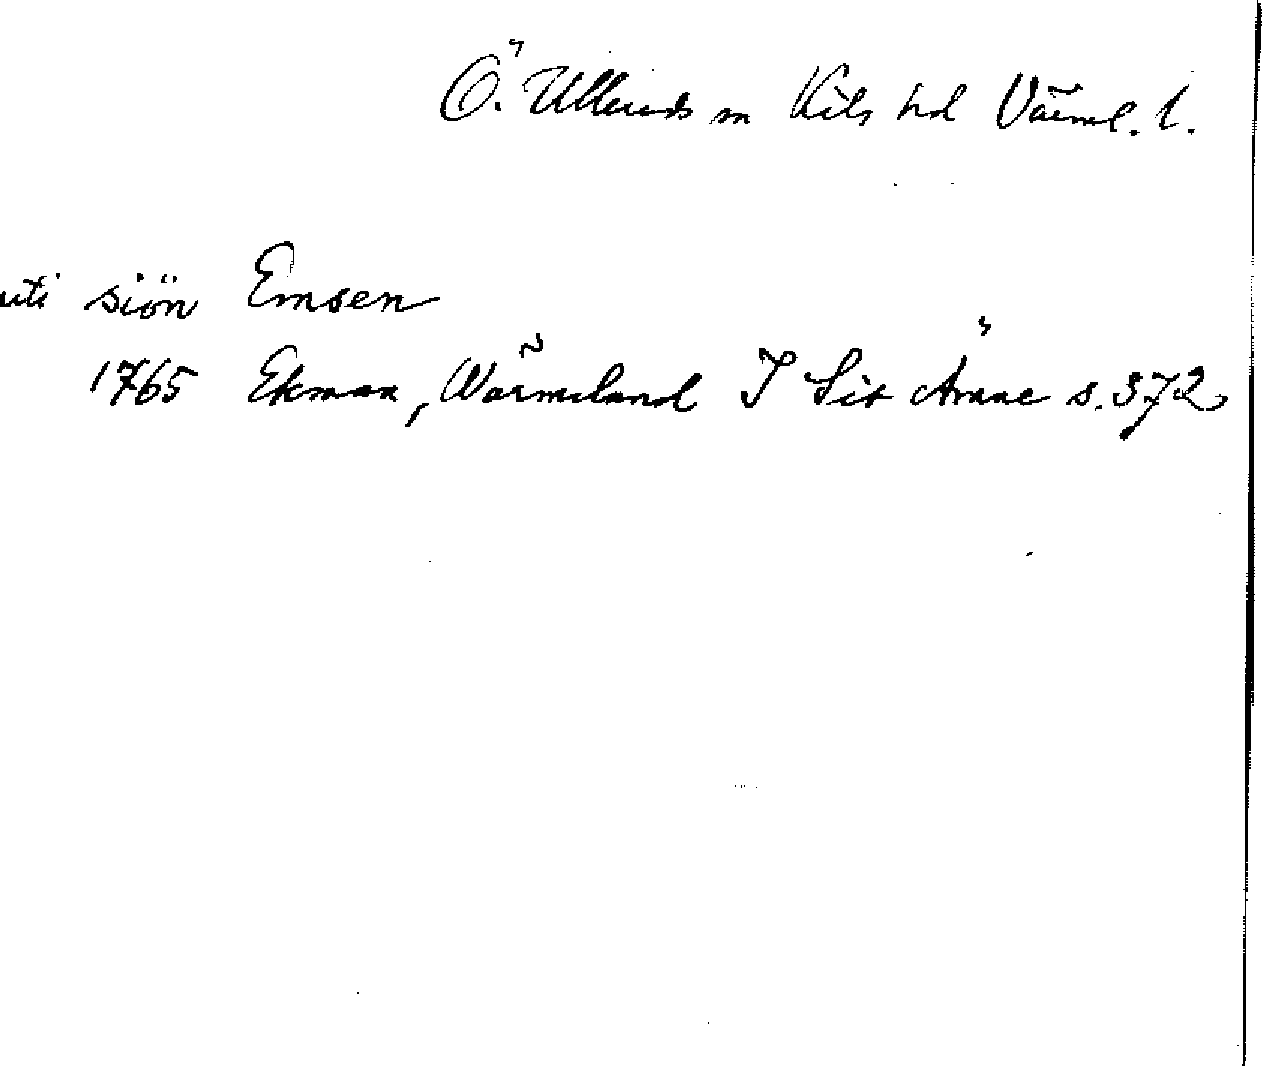 Ö. Ulleruds sn Kils hd Värml. l.
uti siön Emsen
1765 Ekman, Wärmeland I Sit Ämne s. 372